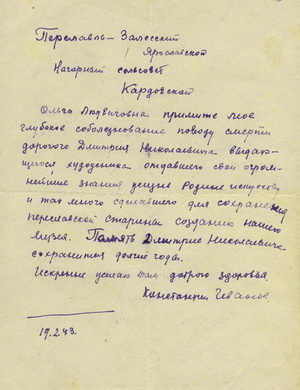 Переславль-Залесский
Ярославской
Нагорный сельсовет
Кардовской
Ольга Людвиговна примите мое
глубокое соболезнование поводу смерти
дорогого Дмитрия Николаевича выдаю-
щегося художника отдавшего свои огром-
нейшие знания Родине искусству
и так много сделавшего для сохранения
переславской старины созданию нашего
музея. Память Дмитрие Николаевиче
сохранится долгие годы.
Искренне желаю Вам доброго здоровья
Константин Иванов.
19.2.43.